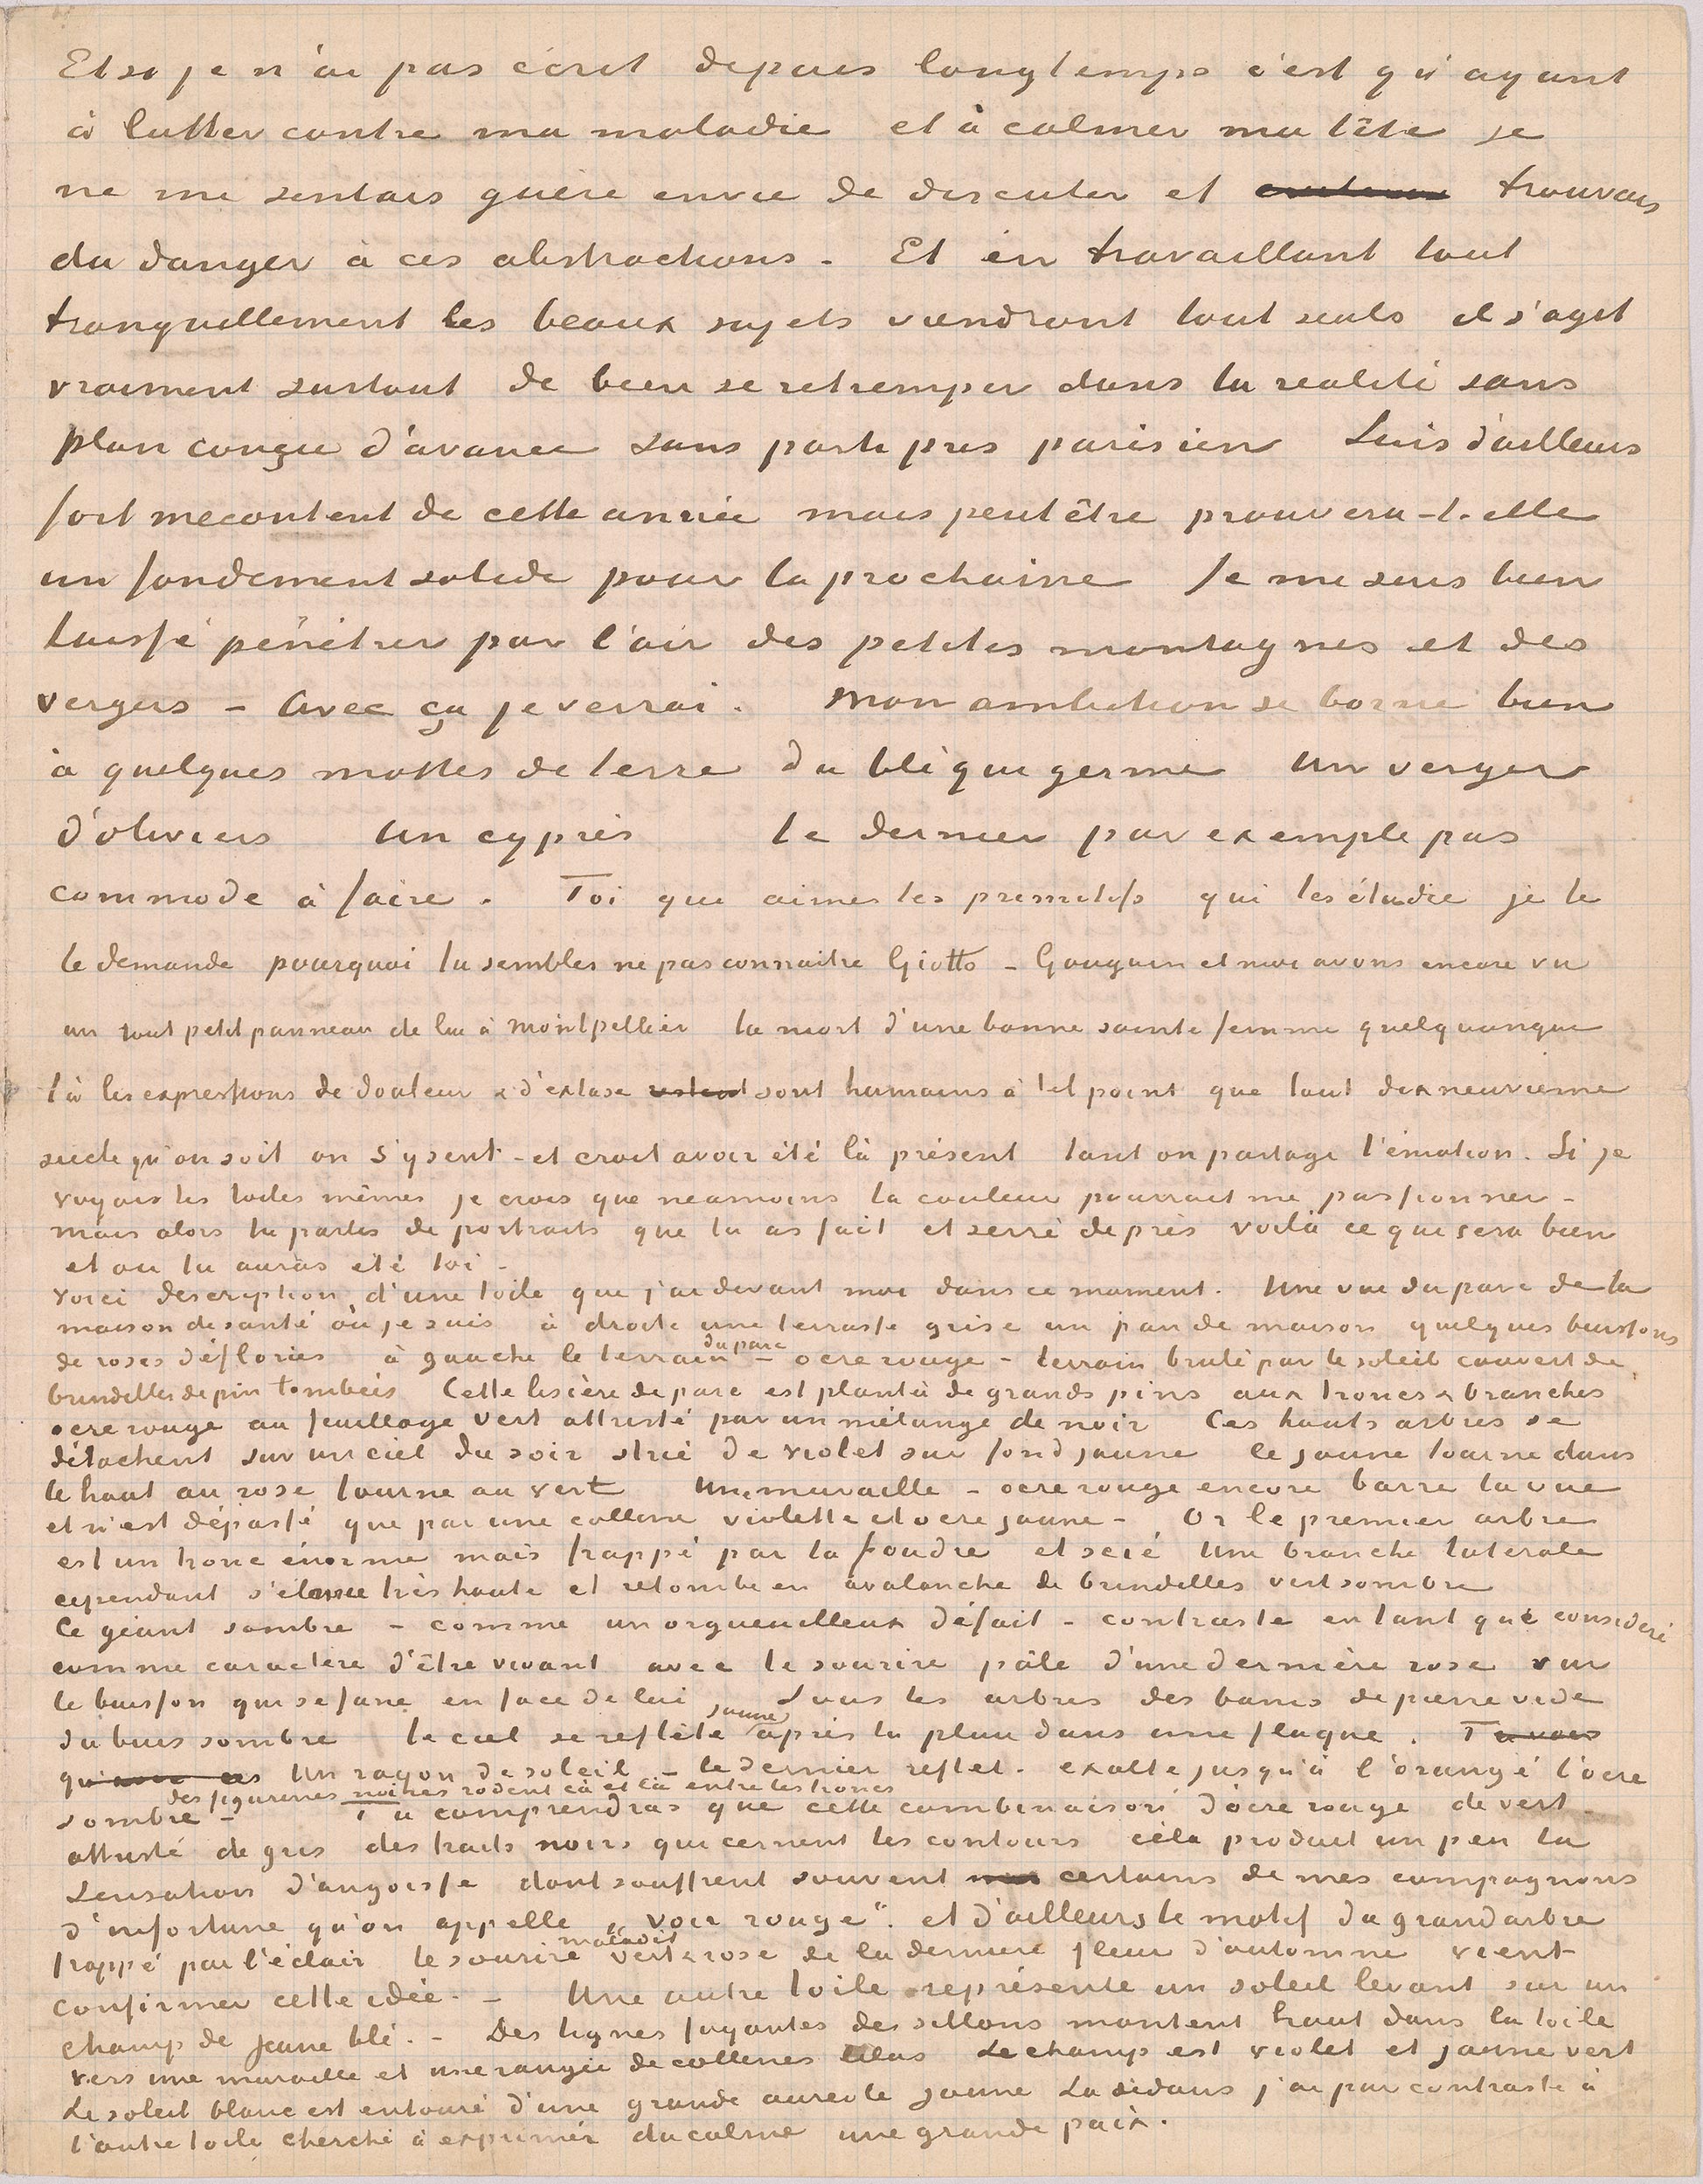 Et si je n'ai pas écrit depuis longtemps c'est qu'ayant
à lutter contre ma maladie et à calmer ma tête je
ne me sentais guère envie de discuter et trouvais
du danger à ces abstractions. Et en travaillant tout
tranquillement les beaux sujets viendront tout seuls il s'agit
vraiment surtout de bien se retremper dans la realité sans
plan conçu d'avance sans parti pris parisien Suis d'ailleurs
fort mecontent de cette année mais peut être prouvera-t-elle
un fondement solide pour la prochaine Je me suis bien
laissé pénétrer par l'air des petites montagnes et des
vergers – Avec ça je verrai. Mon ambition se borne bien
à quelques mottes de terre du blé qui germe Un verger
d'oliviers Un cyprès le dernier par exemple pas
commode à faire. Toi qui aimes les primitifs qui les étudie je te
le demande pourquoi tu sembles ne pas connaitre Giotto – Gauguin et moi avons encore vu
un tout petit panneau de lui à Montpellier la mort d'une bonne sainte femme quelquonque
là les expressions de douleur & d'extase sont humains à tel point que tout dixneuvieme
siecle qu'on soit on s'y sent – et croit avoir été là présent tant on partage l'émotion. Si je
voyais tes toiles mêmes je crois que neamoins la couleur pourrait me passionner –
mais alors tu parles de portraits que tu as fait et serré de près voilà ce qui sera bien
et où tu auras été toi –
Voici description d'une toile que j'ai devant moi dans ce moment. Une vue du parc de la
maison de santé où je suis à droite une terrasse grise un pan de maison quelques buissons
de roses déflories à gauche le terrain du parc – ocre rouge – terrain brulé par le soleil couvert de
brindilles de pin tombées Cette lisière de parc est plantée de grands pins aux troncs & branches
ocre rouge au feuillage vert attristé par un mélange de noir Ces hauts arbres se
détachent sur un ciel du soir strié de violet sur fond jaune le jaune tourne dans
le haut au rose tourne au vert Une muraille – ocre rouge encore barre la vue
et n'est dépassé que par une colline violette et ocre jaune – Or le premier arbre
est un tronc énorme mais frappé par la foudre et scié Une branche laterale
cependant s'élance très haute et retombe en avalanche de brindilles vert sombre
Ce géant sombre – comme un orgueuilleux défait – contraste en tant que consideré
comme caractère d'être vivant avec le sourire pâle d'une dernière rose sur
le buisson qui se fane en face de lui Sous les arbres des bancs de pierre vide
du buis sombre le ciel se reflète jaune après la pluie dans une flaque. Tu vois
qu'avec ces Un rayon de soleil – le dernier reflet – exalte jusqu'à l'orangé l'ocre
sombre – des figurines noires rodent çà et là entre les troncs Tu comprendras que cette combinaison d'ocre rouge de vert
attristé de gris des traits noirs qui cernent les contours cela produit un peu la
sensation d'angoisse dont souffrent souvent certains de mes compagnons
d'infortune qu'on appelle „voir rouge“. et d'ailleurs le motif du grand arbre
frappé par l'éclair le sourire maladif vert & rose de la derniere fleur d'automne vient
confirmer cette idée. – Une autre toile représente un soleil levant sur un
champ de jeune blé. – Des lignes fuyantes des sillons montent haut dans la toile
vers une muraille et une rangée de collines lilas Le champ est violet et jaune vert
Le soleil blanc est entouré d'une grande aureole jaune Là dedans j'ai par contraste à
l'autre toile cherché à exprimer du calme une grande paix.